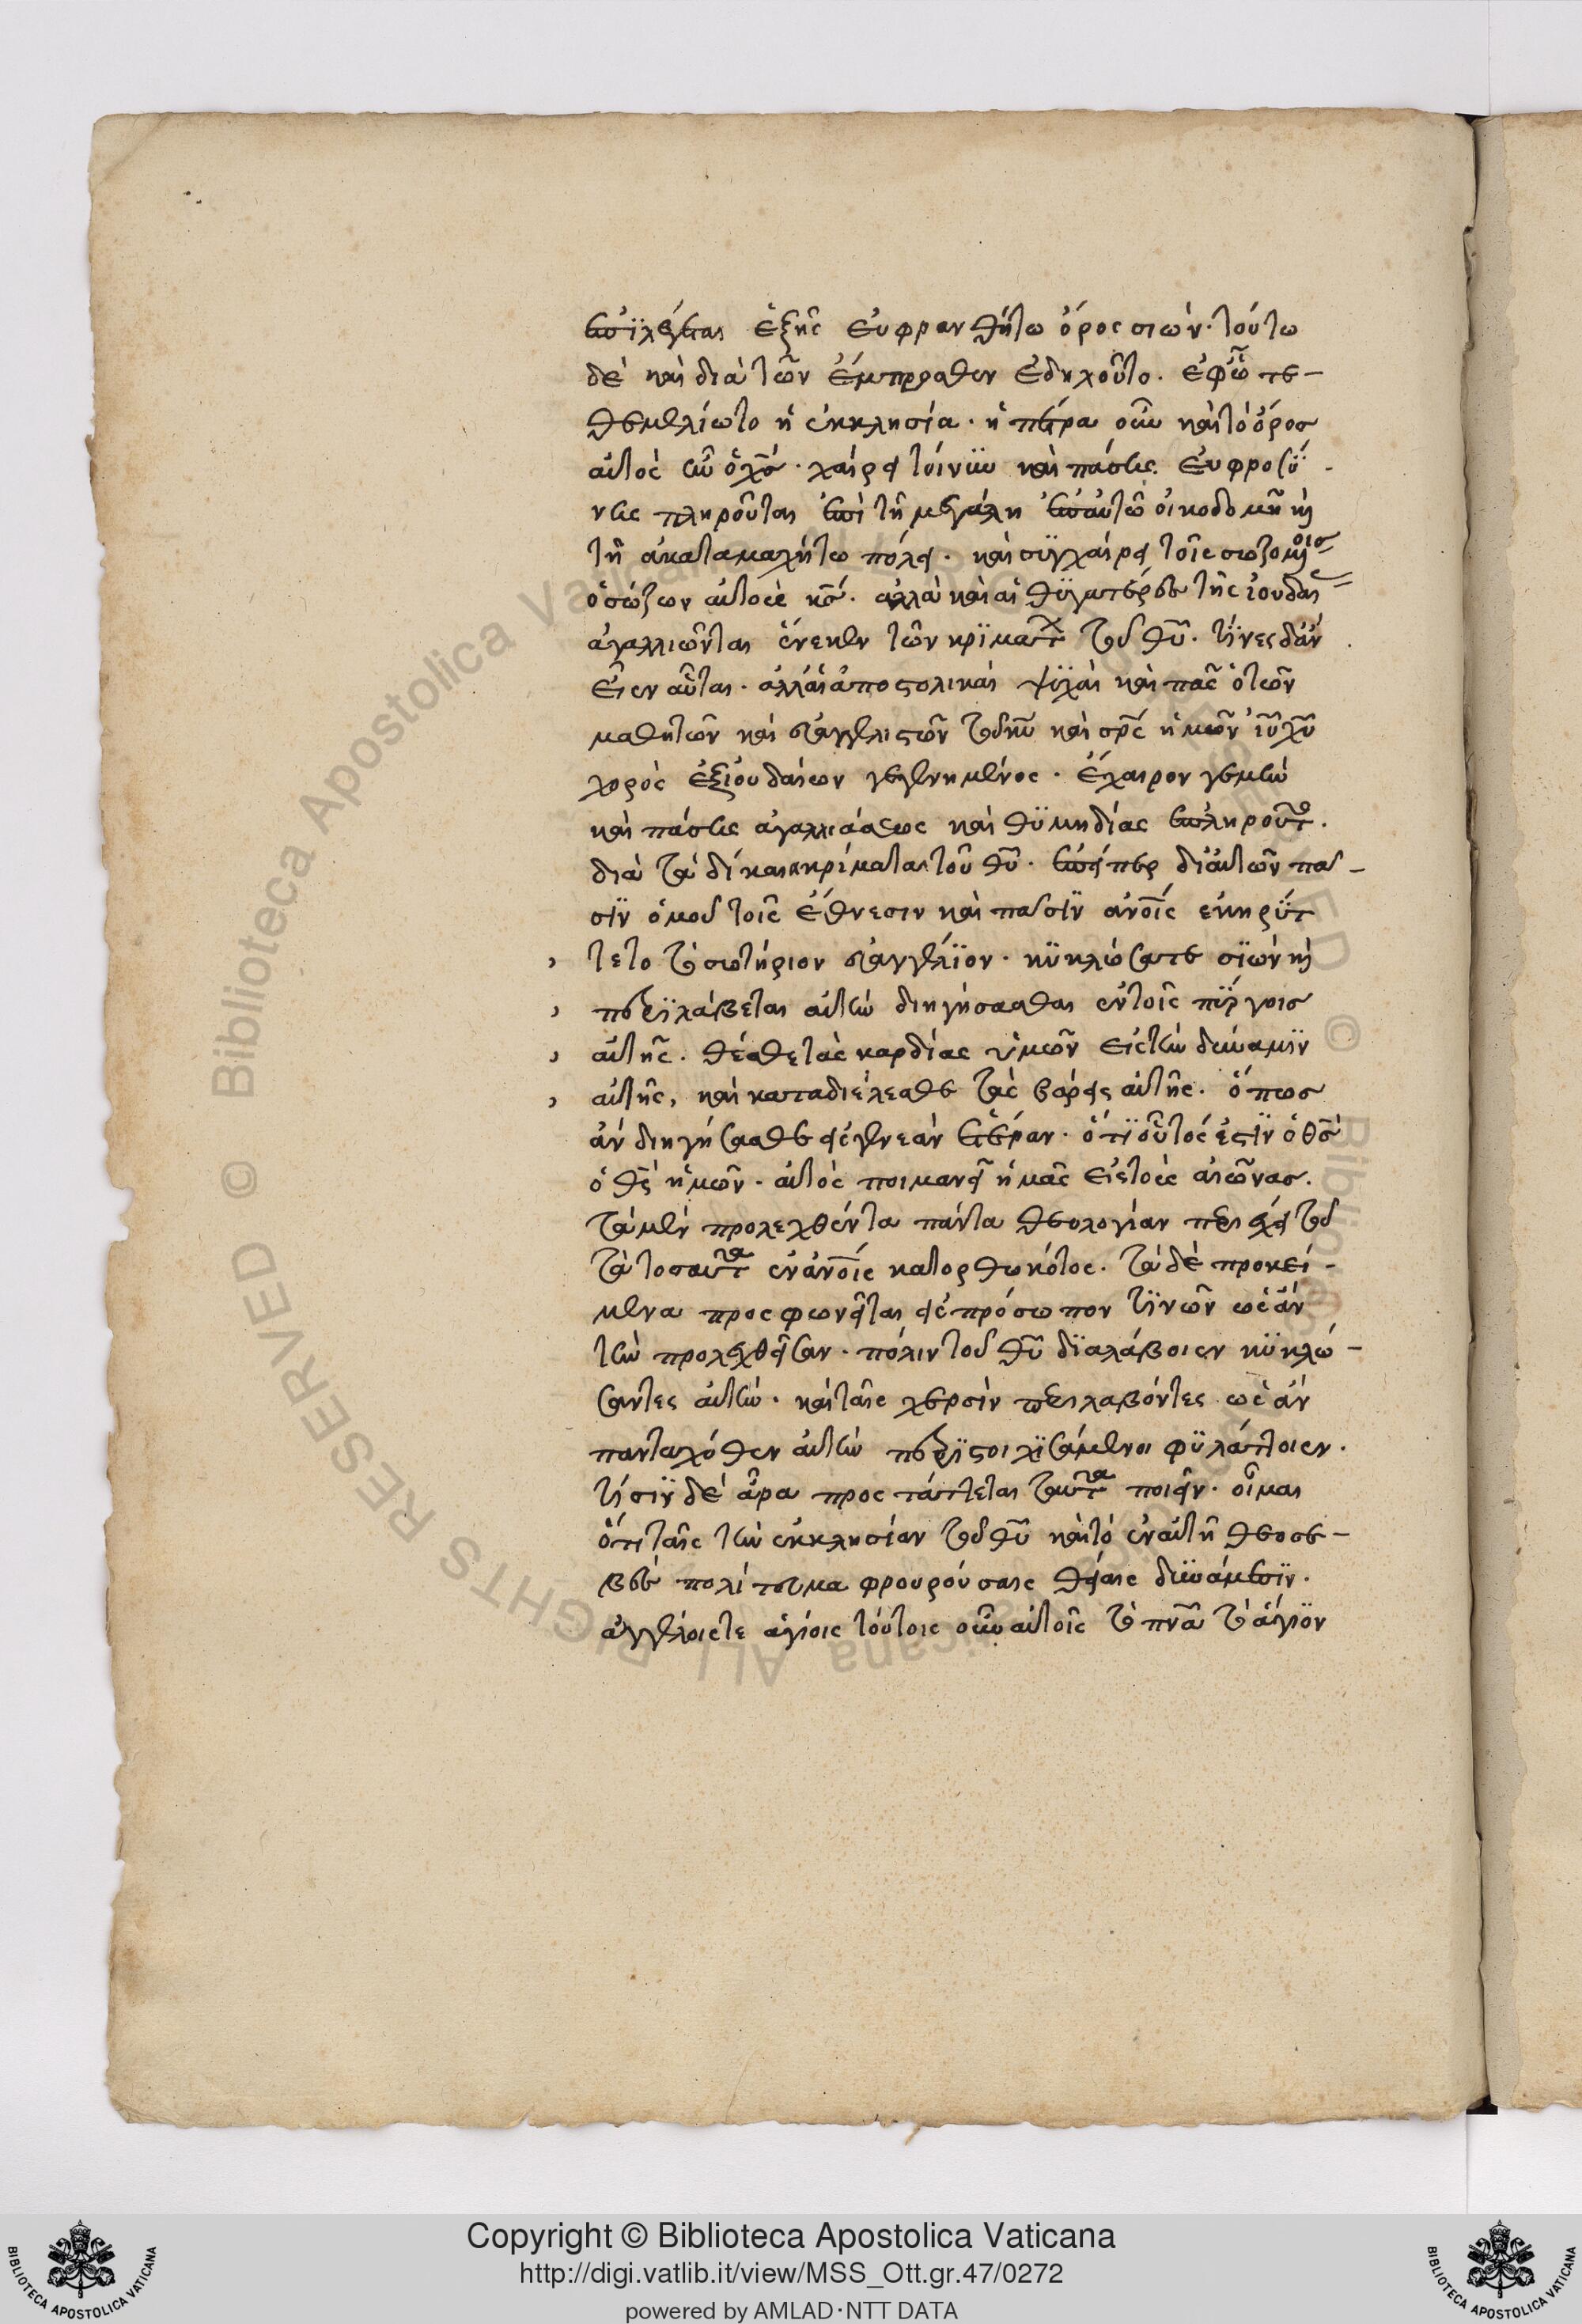 ἐπϊλέγεται ἑξῆς εὐφρανθήτω ὄρος σιών· τούτω
δὲ καὶ διὰ τῶν ἔμπροσθεν ἐδηλοῦτο. ἐφῶ τε-
θεμελίωτο ἡ ἐκκλησία· ἡ πέτρα οὖν καὶ τὸ ὄρος
αὐτὸς ἦν ὁ χς̅· χαίρει τοίνϋν καὶ πάσης εὐφροσϋ-
νης πληροῦται ἐπὶ τῆ μεγάλη ἐπ αὐτῶ οἰκοδομῆ κ
τῆ ἀκαταμαχήτω πόλει· καὶ σϋγχαίρει τοῖς σωζομένοις
ὁ σώζων αὐτοὺς κς̅· ἀλλὰ καὶ αἱ θϋγατέρες τῆς ἰουδαίας
ἀγαλλιῶνται ἕνεκεν τῶν κρϊμάτων τοῦ θυ̅· τΐνες δὰν
εἶεν αὗται· ἀλλ αἱ ἀποστολικαὶ ψϋχαὶ καὶ πᾶς ὁ τῶν
μαθητῶν καὶ εὐαγγελιστῶν τοῦ κυ̅ καὶ σρ̅ς ἡμῶν ιυ̅ χυ̅
χορὸς ἐξ ἰουδαίων γεγενημένος· ἔχαιρον γεμὴν
καὶ πάσης ἀγαλλιάσεως καὶ θϋμηδίας ἐπληροῦντο.
διὰ τὰ δίκαια κρίματα τοῦ θυ̅· ἐπείπερ δι αὐτῶν πα-
σϊν ὁμοῦ τοῖς ἔθνεσιν καὶ πασϊν ἀνοι̅ς ἐκηρύτ
τετο τὸ σωτήριον εὐαγγέλϊον· κϋκλώσατε σϊὼν κ
περϊλάβεται αὐτὴν διηγήσασθαι ἐν τοῖς πϋργοισ
αὐτῆς. θέσθε τὰς καρδίας ὑμῶν εἰς τὴν δύναμϊν
αὐτῆς, καὶ καταδιέλεσθε τὰς βάρεις αὐτῆς. ὅπωσ
ἂν διηγήσησθε εἰς γενεὰν ἑτέραν· ὅτϊ οὗτός ἐστϊν ὁ θς̅
ὁ θς̅ ἡμῶν· αὐτὸς ποιμανεῖ ἡμᾶς εἰς τοὺς αἰῶνασ.
τὰ μὲν προλεχθέντα πάντα θεολογίαν περιέχει τοῦ
τὰ τοσαῦτα ἐν ἀνοι̅ς κατορθωκότος. τὰ δὲ προκεί-
μενα προσφωνεῖται εἰς πρόσωπον τϊνῶν ὡς ἂν
τὴν προλεχθεῖσαν· πόλιν τοῦ θυ̅ δϊαλάβοιεν κϋκλώ-
σαντες αὐτήν· καὶ ταῖς χερσὶν περιλαβόντες ὡς ἂν
πανταχόθεν αὐτὴν περϊστοιχϊσάμενοι φϋλάττοιεν.
τίσϊν δὲ ἄρα προστάττεται ταῦτα ποιεῖν· οἶμαι
ὅτι ταῖς τὴν ἐκκλησίαν τοῦ θυ̅ καὶ τὸ ἐν αὐτῆ θεοσε-
βὲς πολίτευμα φρουρούσαις θείαις δϋνάμεσϊν.
ἀγγέλοις τε ἁγίοις τούτοις οὖν αὐτοῖς τὸ πνα̅ τὸ ἅγϊον
Copyright © Biblioteca Apostolica Vaticana
http://digi.vatlib.it/view/MSS_Ott.gr.47/0272
powered by AMLAD·NTT DATA